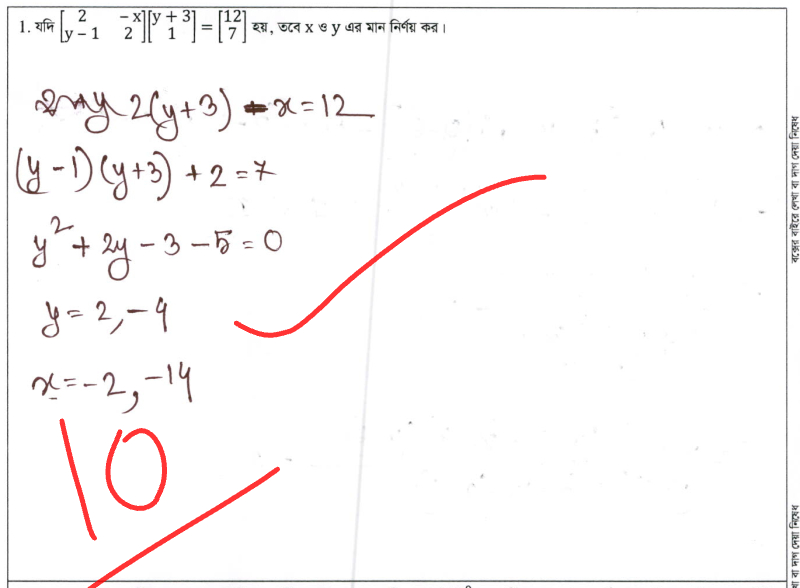 1. যদি [2 −x y − 1 2][y + 3 1] = [12 7] হয়, তবে x ও y এর মান নির্ণয় কর।
2(y+3) - x = 12
(y-1) (y+3) + 2 = 7
y² + 2y - 3 - 5 = 0
y = 2, -4
x = -2, -14
10
বক্সের বাইরে লেখা বা দাগ দেয়া নিষেধ
খা বা দাগ দেয়া নিষেধ